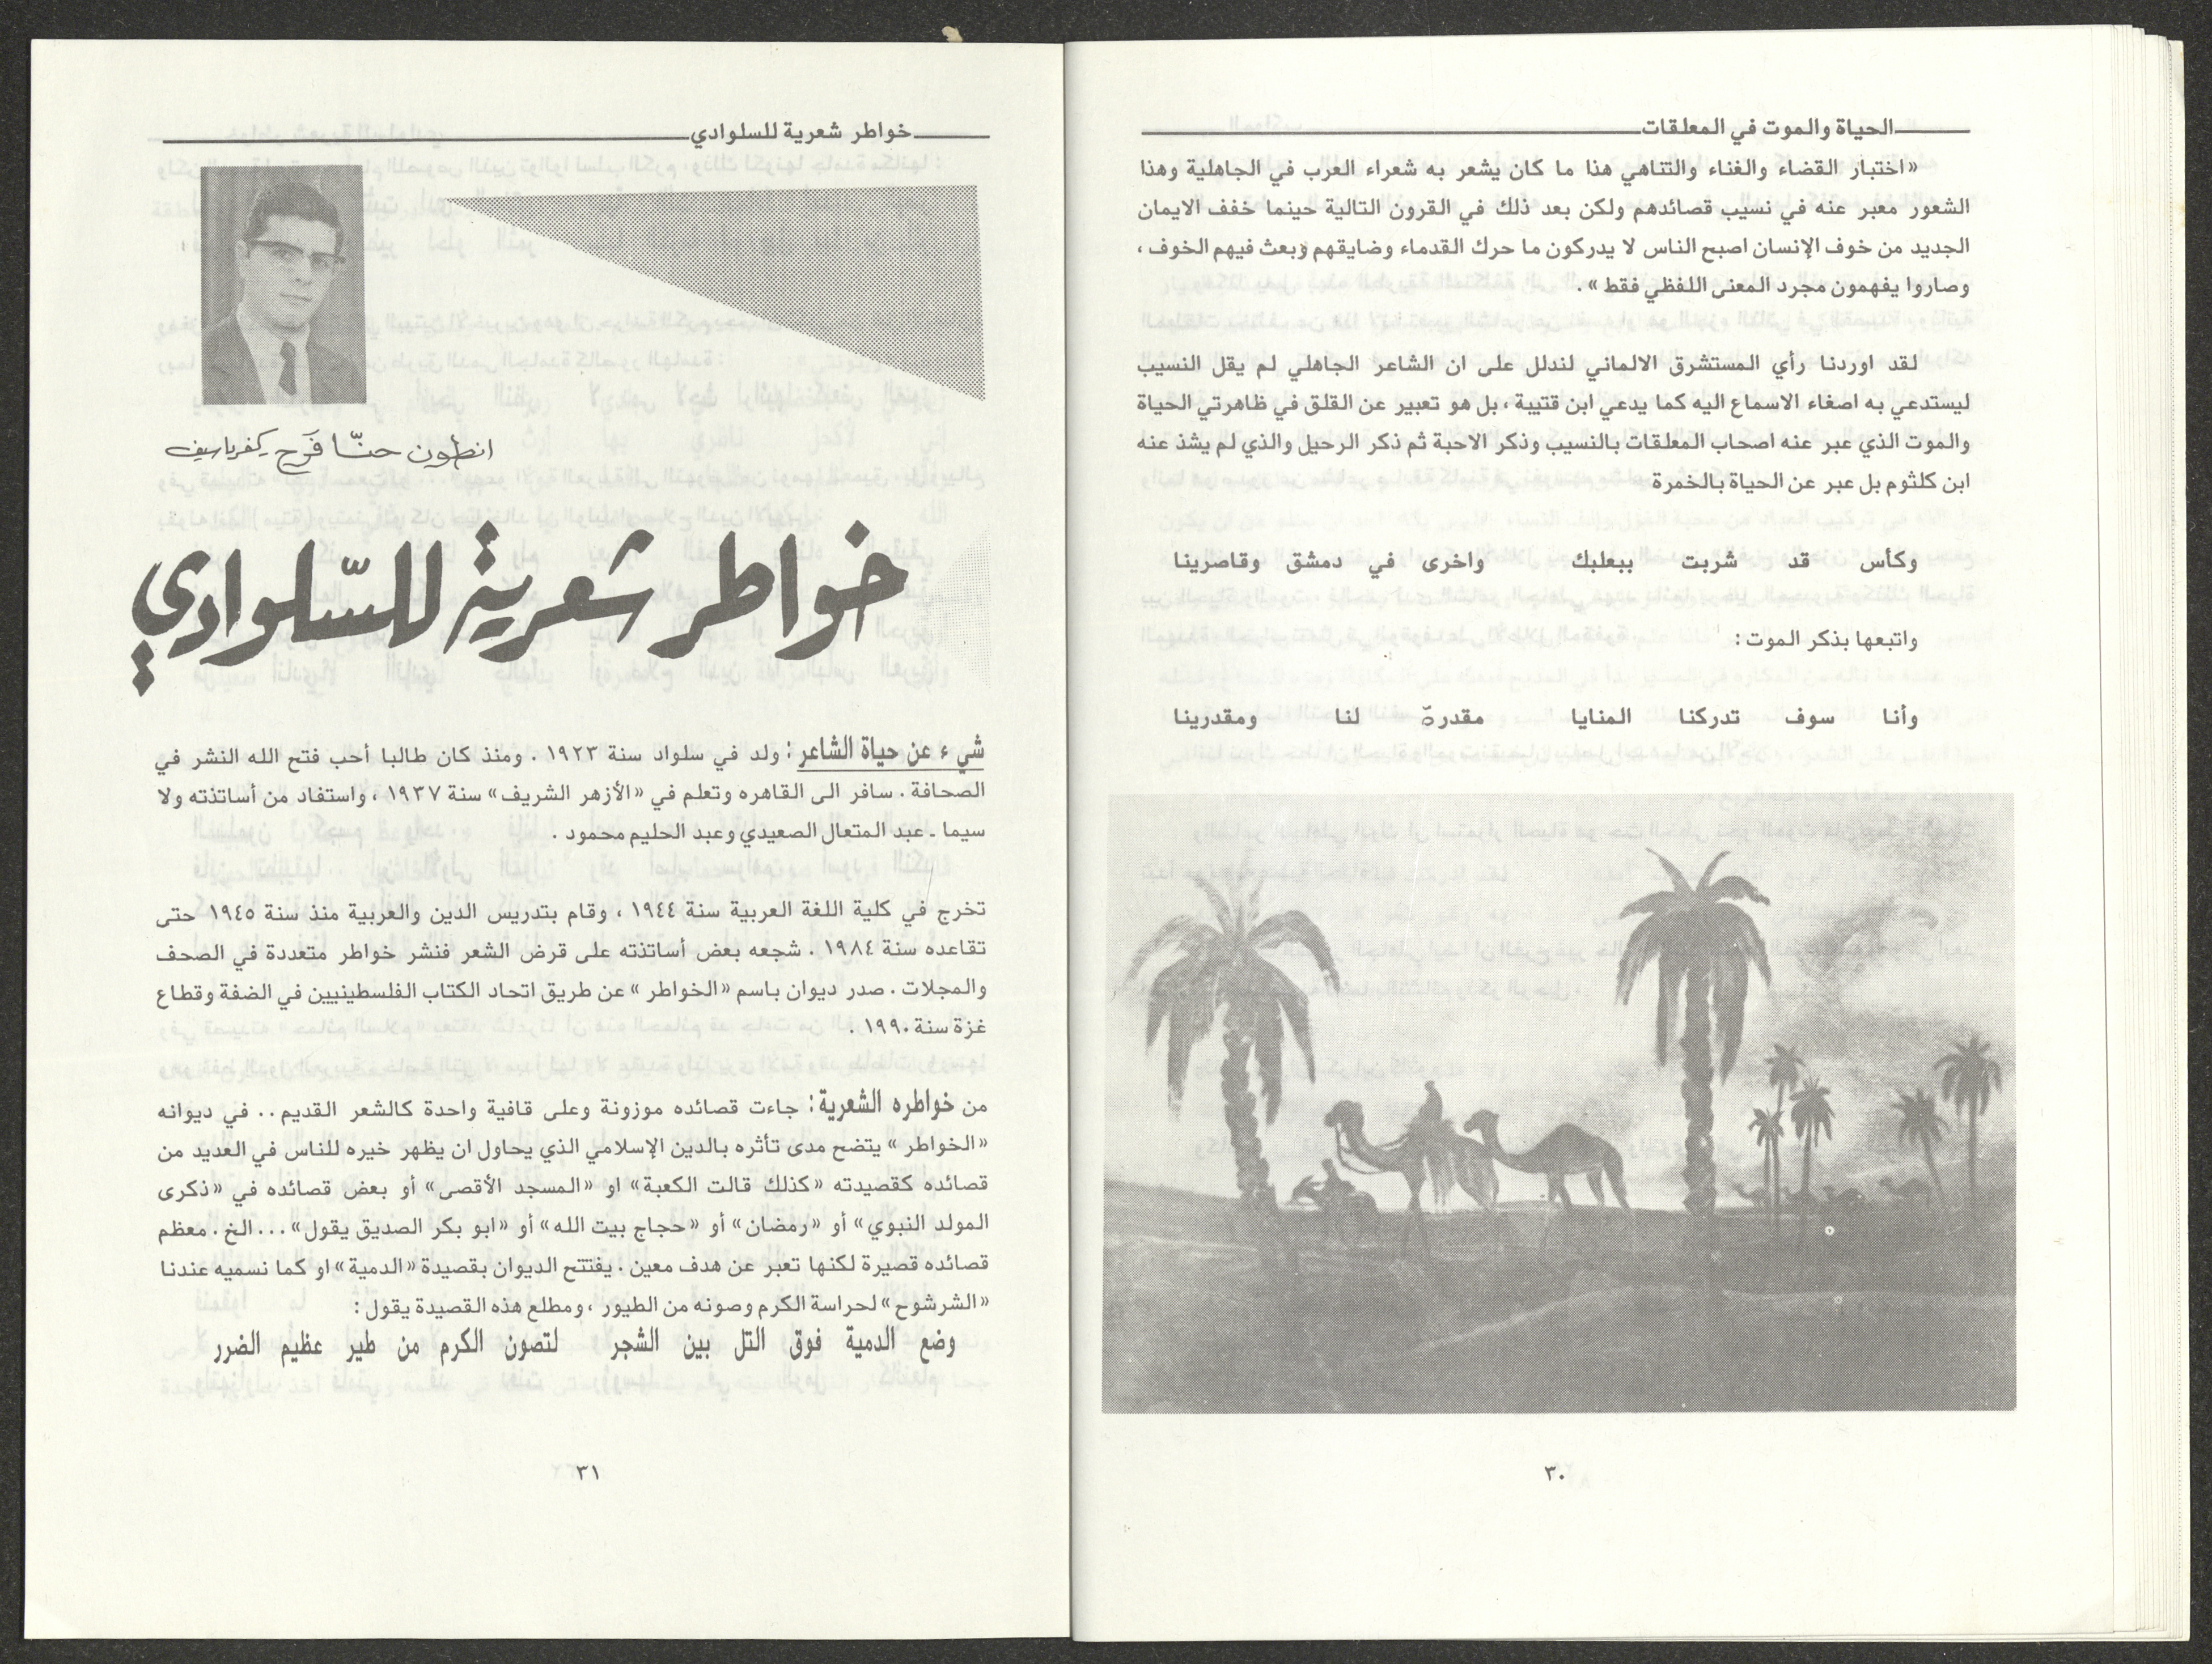 الحياة والموت في المعلقات
«اختبار القضاء والغناء والتناهي هذا ما كان يشعر به شعراء العرب في الجاهلية وهذا
الشعور معبر عنه في نسيب قصائدهم ولكن بعد ذلك في القرون التالية حينما خفف الايمان
الجديد من خوف الإنسان اصبح الناس لا يدركون ما حرك القدماء وضايقهم وبعث فيهم الخوف ،
وصاروا يفهمون مجرد المعنى اللفظي فقط» .
لقد اوردنا رأي المستشرق الالماني لندلل على ان الشاعر الجاهلي لم يقل النسيب
ليستدعي به اصغاء الاسماع اليه كما يدعي ابن قتيبة ، بل هو تعبير عن القلق في ظاهرتي الحياة
والموت الذي عبر عنه اصحاب المعلقات بالنسيب وذكر الاحبة ثم ذكر الرحيل والذي لم يشذ عنه
ابن كلثوم بل عبر عن الحياة بالخمرة
وكأس قد شربت ببعلبك واخرى في دمشق وقاصرينا
واتبعها بذكر الموت :
وأنا سوف تدركنا المنايا مقدرةّ لنا ومقدرينا
٣٠
خواطر شعرية للسلوادي
انطون حنّا فَرَح كفرياسيف
خواطر شعرية للسّلوادي
شيء عن حياة الشاعر : ولد في سلواد سنة ١٩٢٣ . ومنذ كان طالبا أحب فتح الله النشر في
الصحافة . سافر الى القاهره وتعلم في «الأزهر الشريف» سنة ١٩٣٧ ، واستفاد من أساتذته ولا
سيما ـ عبد المتعال الصعيدي وعبد الحليم محمود .
تخرج في كلية اللغة العربية سنة ١٩٤٤ ، وقام بتدريس الدين والعربية منذ سنة ١٩٤٥ حتى
تقاعده سنة ١٩٨٤ . شجعه بعض أساتذته على قرض الشعر فنشر خواطر متعددة في الصحف
والمجلات . صدر ديوان باسم «الخواطر» عن طريق اتحاد الكتاب الفلسطينيين في الضفة وقطاع
غزة سنة ١٩٩٠ .
من خواطره الشعرية : جاءت قصائده موزونة وعلى قافية واحدة كالشعر القديم .. في ديوانه
«الخواطر» يتضح مدى تأثره بالدين الإسلامي الذي يحاول ان يظهر خيره للناس في العديد من
قصائده كقصيدته «كذلك قالت الكعبة» او «المسجد الأقصى» أو بعض قصائده في «ذكرى
المولد النبوي» أو «رمضان» أو «حجاج بيت الله» أو «ابو بكر الصديق يقول» ... الخ . معظم
قصائده قصيرة لكنها تعبر عن هدف معين . يفتتح الديوان بقصيدة «الدمية» او كما نسميه عندنا
«الشرشوح» لحراسة الكرم وصونه من الطيور ، ومطلع هذه القصيدة يقول :
وضع الدمية فوق التل بين الشجر لتصون الكرم من طير عظيم الضرر
٣١